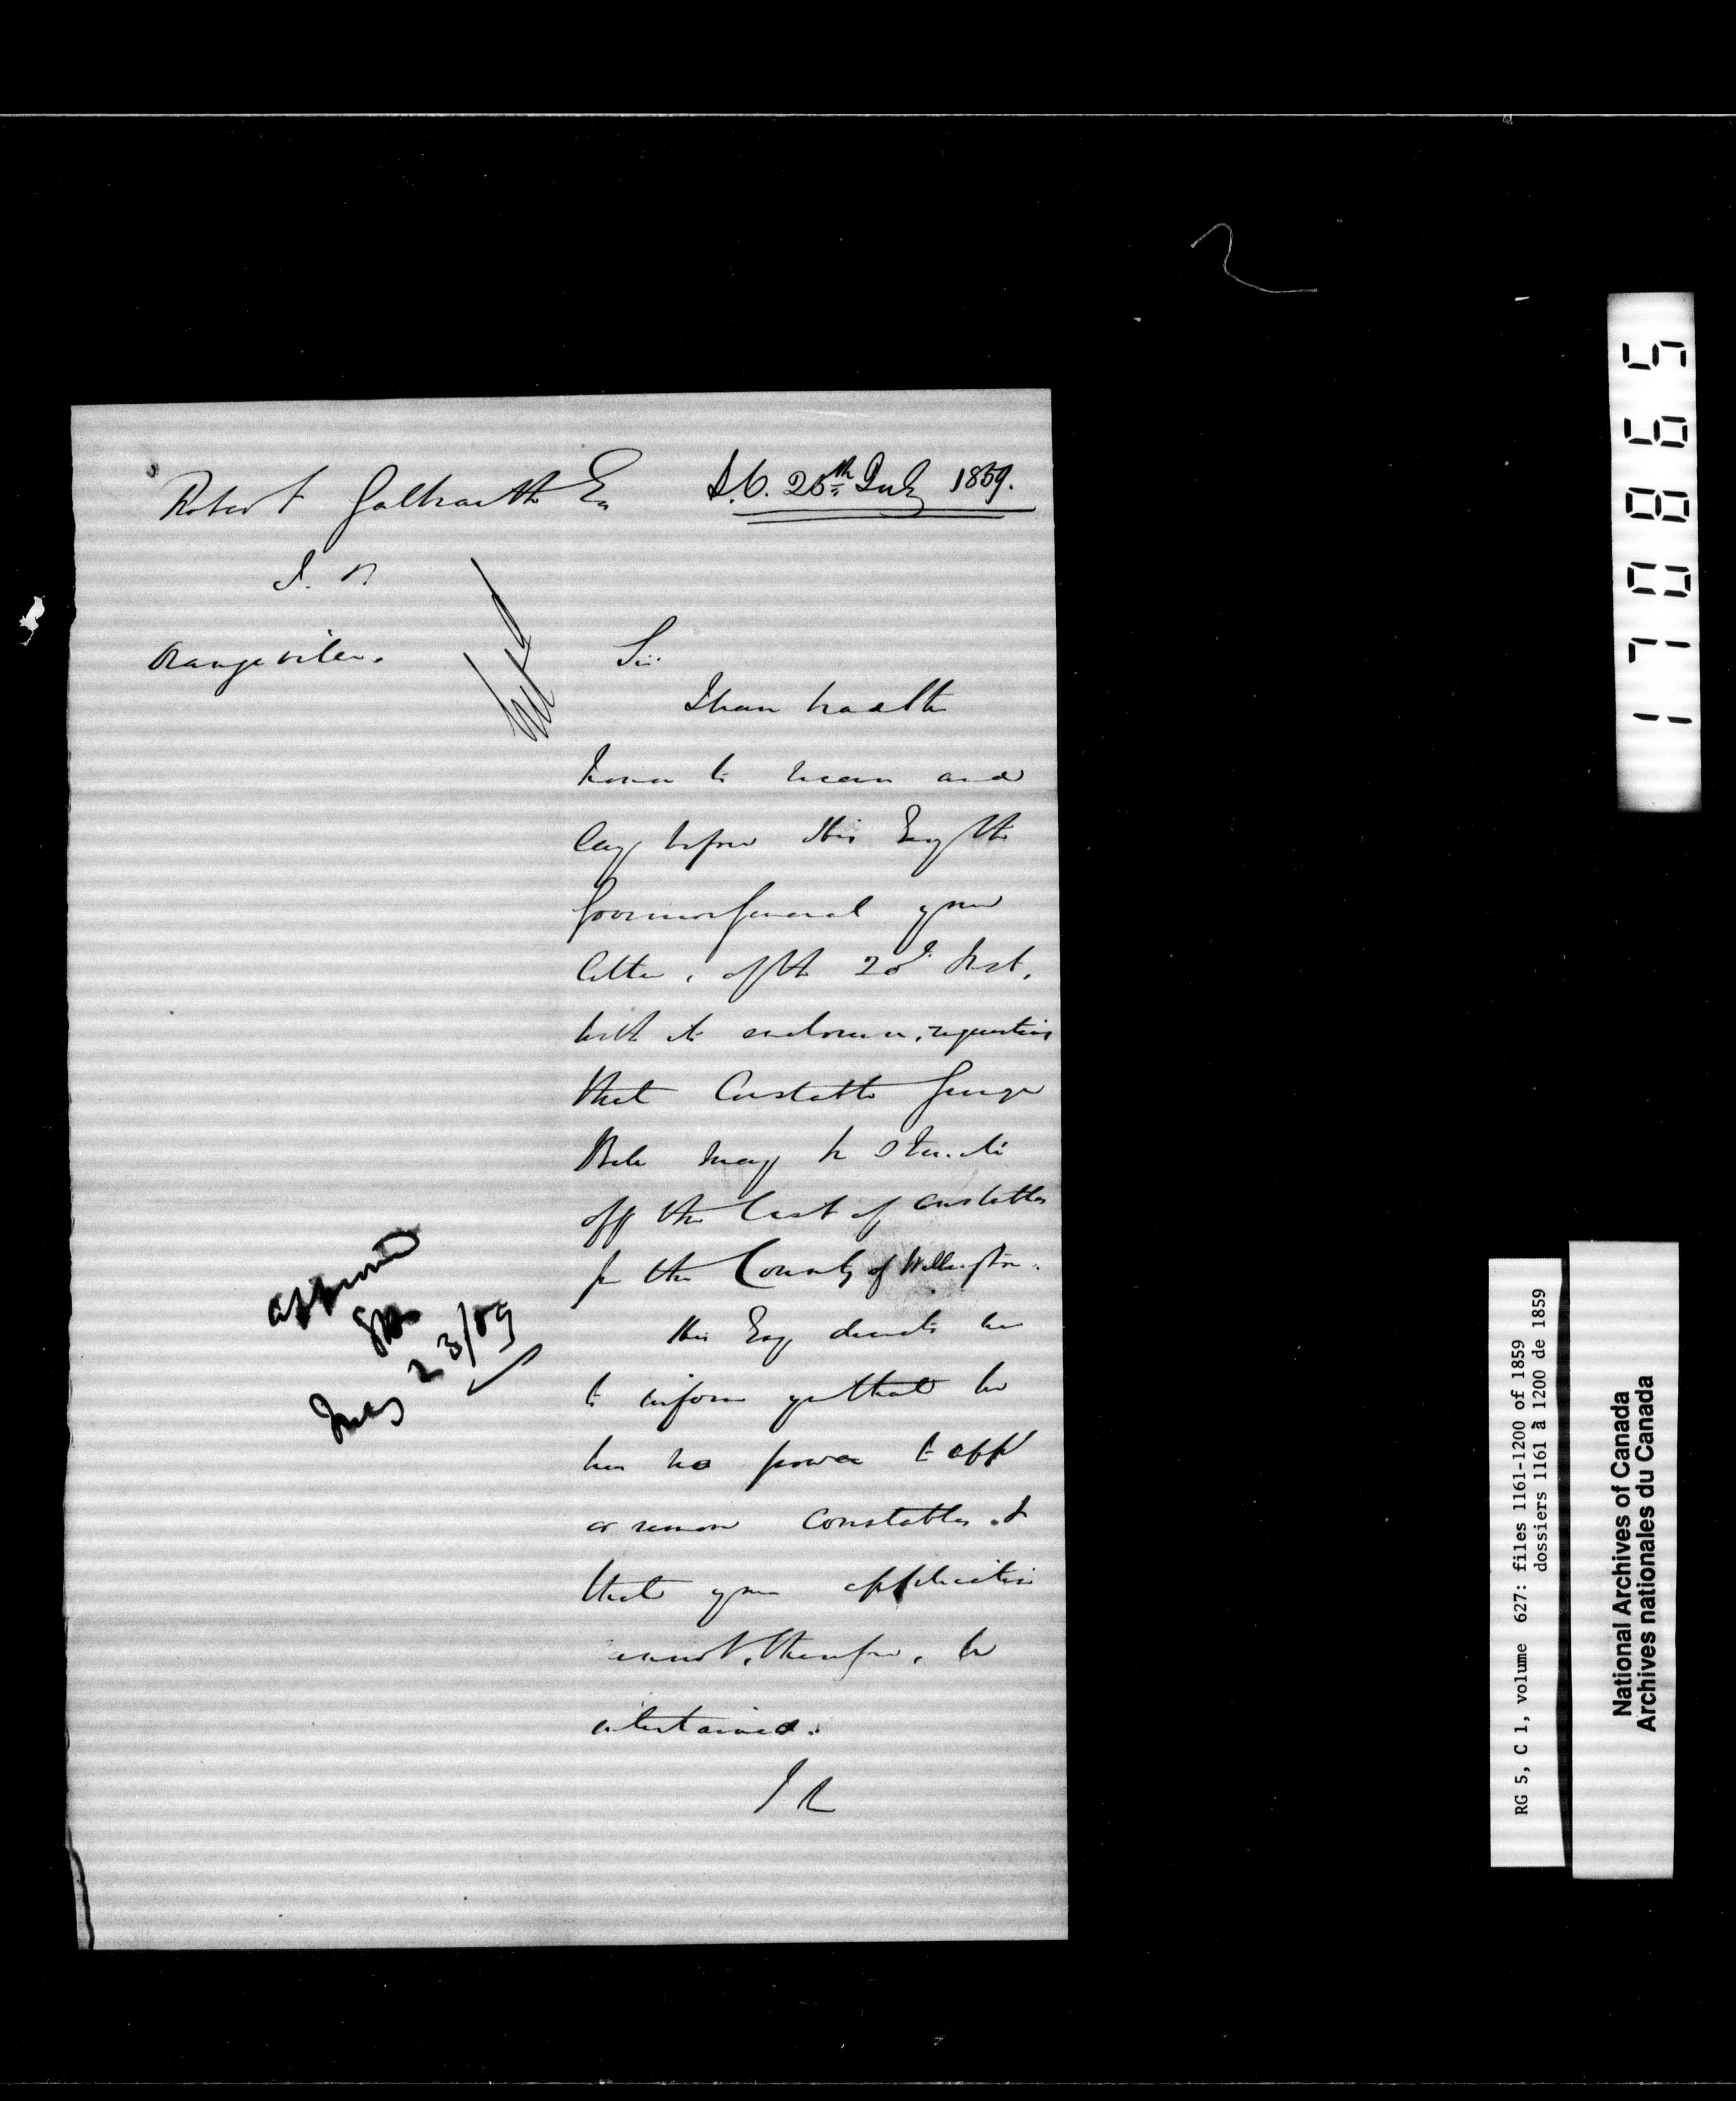 Robert Galbraith Esq
S.O. 26th July 1859.
J. P.
Orangeville.
Sir
I have had the
honor to receive and
lay before His Excy the
Governor General your
letter, of the 20th Inst,
with its enclosure, requesting
that Constable George
Bell may be struck
off the list of Constables
for the County of Wellington.
His Excy directs me
to inform you that he
has no power to appt
or remove Constables &
that your application
cannot, therefore, be
entertained.
approved
July 23/59
170865
RG 5, C 1, volume 627: files 1161-1200 of 1859
dossiers 1161 à 1200 de 1859
National Archives of Canada
Archives nationales du Canada